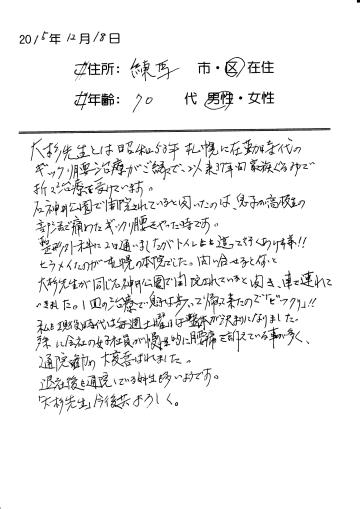 2015年12月18日
住所： 練馬 市・区在住
年齢： 70 代 男性・女性
大杉先生とは昭和53年札幌に在勤時代の
ギックリ腰治療がご縁で、以来37年間家族ぐるみで
折々治療を受けています。
石神井公園で開院されていると聞いたのは、息子が高校生の
部活で痛めたギックリ腰をやった時です。
整形外科に2日通いましたがトイレも這って行くあり様!!
ヒラメイたのが札幌の本院でした。問い合せると
大杉先生が同じ石神井公園で開院されていると聞き、車で連れて
いきました。1回の治療で息子は歩いて帰って来たので"ビックリ"!!
私も現役時代は毎週土曜日は整体が決まりになりました。
殊に会社の女子社員が慢性的に腰痛を訴えている事が多く、
通院
大変喜ばれました。
退社後も通院している女性も多いようです。
「大杉先生」今後共よろしく。